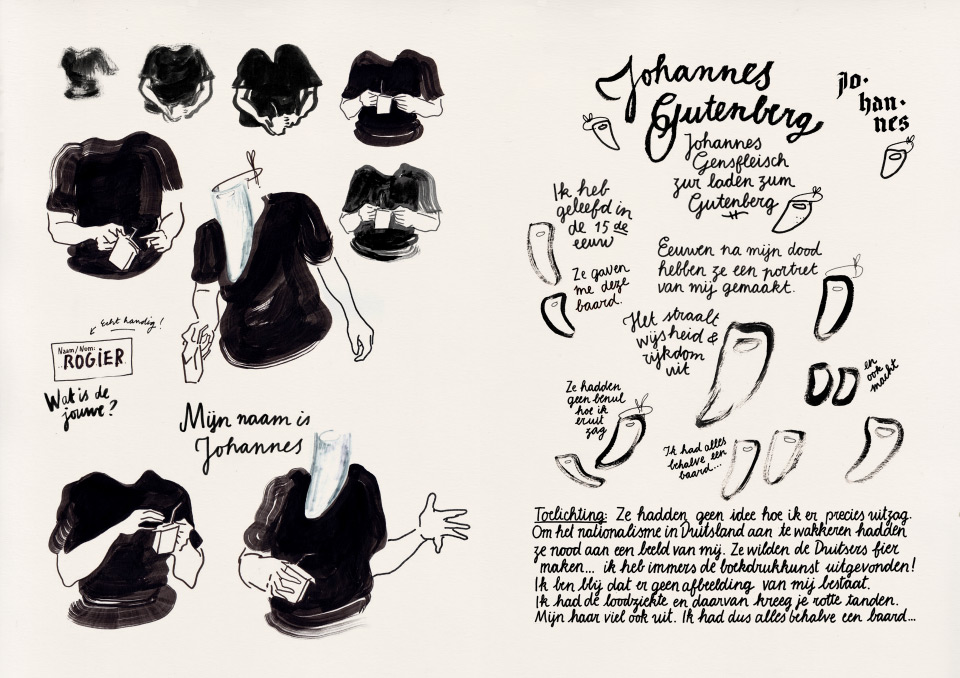 Echt handig!
Naam/Nom:
ROGIER
Wat is de
jouwe?
Mijn naam is
Johannes
Johannes
Gutenberg
Jo-
han-
nes
Johannes
Gensfleisch
zur laden zum
Gutenberg
Ik heb
geleefd in
de 15 de
eeuw
Ze gaven
me deze
baard.
Eeuwen na mijn dood
hebben ze een portret
van mij gemaakt.
Het straalt
wijsheid &
rijkdom
uit
en
ook
macht
Ze hadden
geen benul
hoe ik
eruit
zag
Ik had alles
behalve een
baard...
Toelichting: Ze hadden geen idee hoe ik er precies uitzag.
Om het nationalisme in Duitsland aan te wakkeren hadden
ze nood aan een beeld van mij. Ze wilden de Duitsers fier
maken... ik heb immers de boekdrukkunst uitgevonden!
Ik ben blij dat er geen afbeelding van mij bestaat.
Ik had de loodziekte en daarvan kreeg je rotte tanden.
Mijn haar viel ook uit. Ik had dus alles behalve een baard...